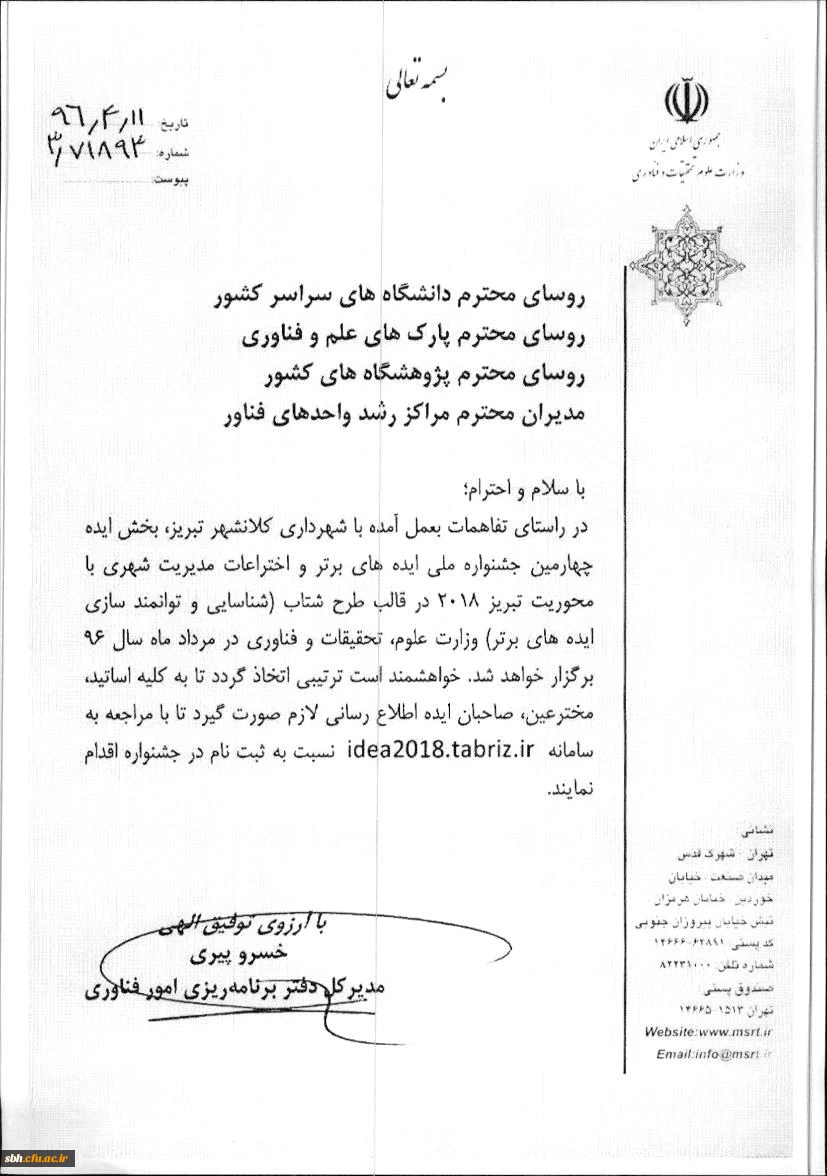 بسمه تعالی
جمهوری اسلامی ایران
وزارت علوم تحقیقات و فناوری
تاریخ: ۹۶٫۴٫۱۱
شماره: ۳٫۷۱۸۹۴
پیوست:
روسای محترم دانشگاه های سراسر کشور
روسای محترم پارک های علم و فناوری
روسای محترم پژوهشگاه های کشور
مدیران محترم مراکز رشد واحدهای فناور
با سلام و احترام؛
در راستای تفاهمات بعمل آمده با شهرداری کلانشهر تبریز، بخش ایده
چهارمین جشنواره ملی ایده های برتر و اختراعات مدیریت شهری با
محوریت تبریز ۲۰۱۸ در قالب طرح شتاب (شناسایی و توانمند سازی
ایده های برتر) وزارت علوم، تحقیقات و فناوری در مرداد ماه سال ۹۶
برگزار خواهد شد. خواهشمند است ترتیبی اتخاذ گردد تا به کلیه اساتید،
مخترعین، صاحبان ایده اطلاع رسانی لازم صورت گیرد تا با مراجعه به
سامانه idea2018.tabriz.ir نسبت به ثبت نام در جشنواره اقدام
نمایند.
با آرزوی توفیق الهی
خسرو پیری
مدیرکل دفتر برنامه‌ریزی امور فناوری
نشانی:
تهران - شهرک قدس
میدان صنعت - خیابان
خوردین - خیابان هرمزان
نبش خیابان پیروزان جنوبی
کد پستی: ۶۴۸۹۱-۱۴۶۶۶
شماره تلفن: ۸۲۲۳۱۰۰۰
صندوق پستی:
تهران ۱۵۱۳-۱۴۶۶۵
Website:www.msrt.ir
Email:info@msrt.ir
sbh.cfu.ac.ir